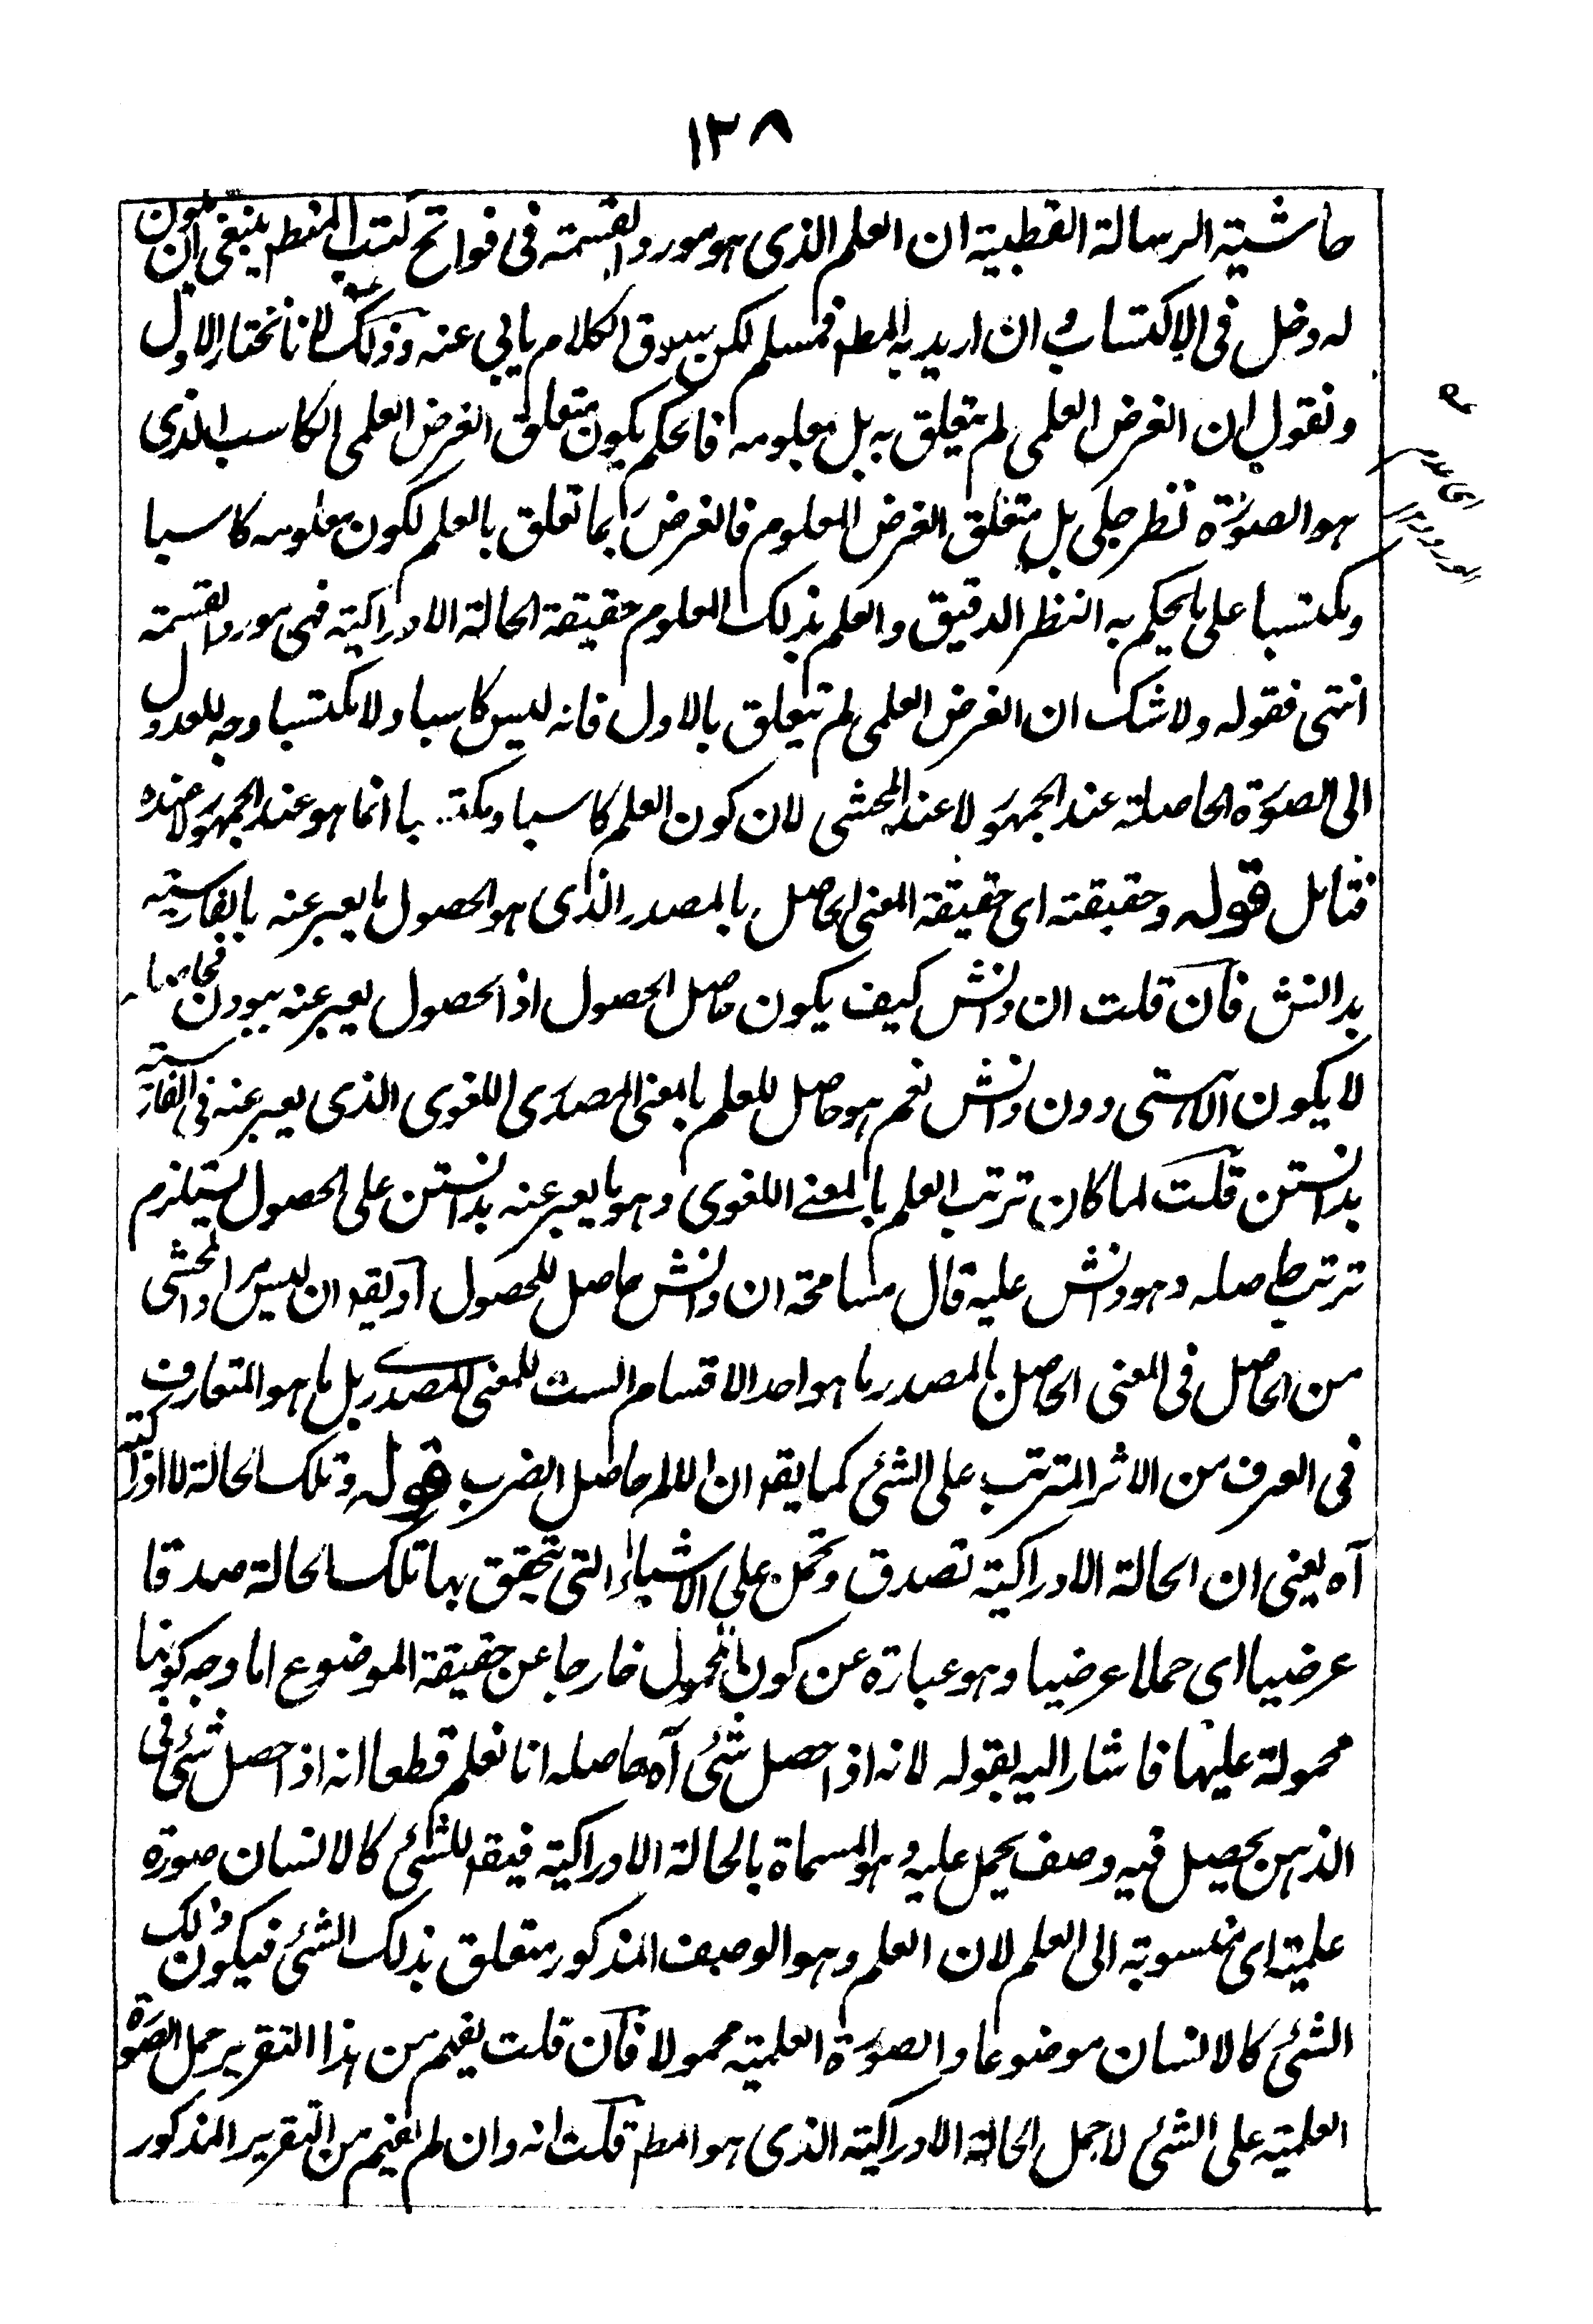 ١٢٨
حاشية الرسالة القطبية ان العلم الذى هو مورد القسمة فى فواتح كتب المنط ينبغى ان يكون
له دخل فى الاكتساب و ان اريد به المط فمسلم لكن سوق الكلام يابى عنه وذلك لانا نختار الاول
ونقول ان الغرض العلمى لم يتعلق به بل بمعلومه فالحكم بكون متعلق الغرض العلمى الكاسب الذى
هو الصورة نظر جلى بل متعلق الغرض المعلوم فالغرض ربما تعلق بالعلم لكون معلومه كاسبا
ومكتسبا على ما يحكم به النظر الدقيق والعلم بذلك المعلوم حقيقة الحالة الادراكية فهى مورد القسمة
انتهى فقوله ولا شك ان الغرض العلمى لم يتعلق بالاول فانه ليس كاسبا ولا مكتسبا وجه للعدول
الى الصورة الحاصلة عند الجمهور لا عند المحشى لان كون العلم كاسبا ومكتسبا انما هو عند الجمهور لا عنده
فتامل قوله وحقيقته اى حقيقة المعنى الحاصل بالمصدر الذى هو الحصول ما يعبر عنه بالفارسية
بدانش فان قلت ان دانش كيف يكون حاصل الحصول اذ الحصول يعبر عنه ببودن فحاصله
لا يكون الا هستى دون دانش نعم هو حاصل للعلم بالمعنى المصدرى اللغوى الذى يعبر عنه فى الفارسية
بدانستن قلت لما كان ترتب العلم بالمعنى اللغوى وهو ما يعبر عنه بدانستن على الحصول يستلزم
ترتب حاصله وهو دانش عليه قال مسامحة ان دانش حاصل للحصول او يقه ان ليس مراد المحشى
من الحاصل فى المعنى الحاصل بالمصدر ما هو احد الاقسام الست للمعنى المصدرى بل ما هو المتعارف
فى العرف من الاثر المترتب على الشئ كما يقه ان الالم حاصل الضرب قوله وتلك الحالة الادراكية
آه يعنى ان الحالة الادراكية تصدق وتحمل على الاشياء التى تحقق بها تلك الحالة صدقا
عرضيا اى حملا عرضيا وهو عبارة عن كون المحمول خارجا عن حقيقة الموضوع اما وجه كونها
محمولة عليها فاشار اليه بقوله لانه اذا حصل شئ آه حاصله انا نعلم قطعا انه اذا حصل شئ فى
الذهن يحصل فيه وصف يحمل عليه و هو المسماة بالحالة الادراكية فيقه للشئ كالانسان صورة
علمية اى منسوبة الى العلم لان العلم وهو الوصف المذكور متعلق بذلك الشئ فيكون ذلك
الشئ كالانسان موضوعا والصورة العلمية محمولا فان قلت يفهم من هذا التقرير حمل الصورة
العلمية على الشئ لا حمل الحالة الادراكية الذى هو المط قلت انه وان لم يفهم من التقرير المذكور